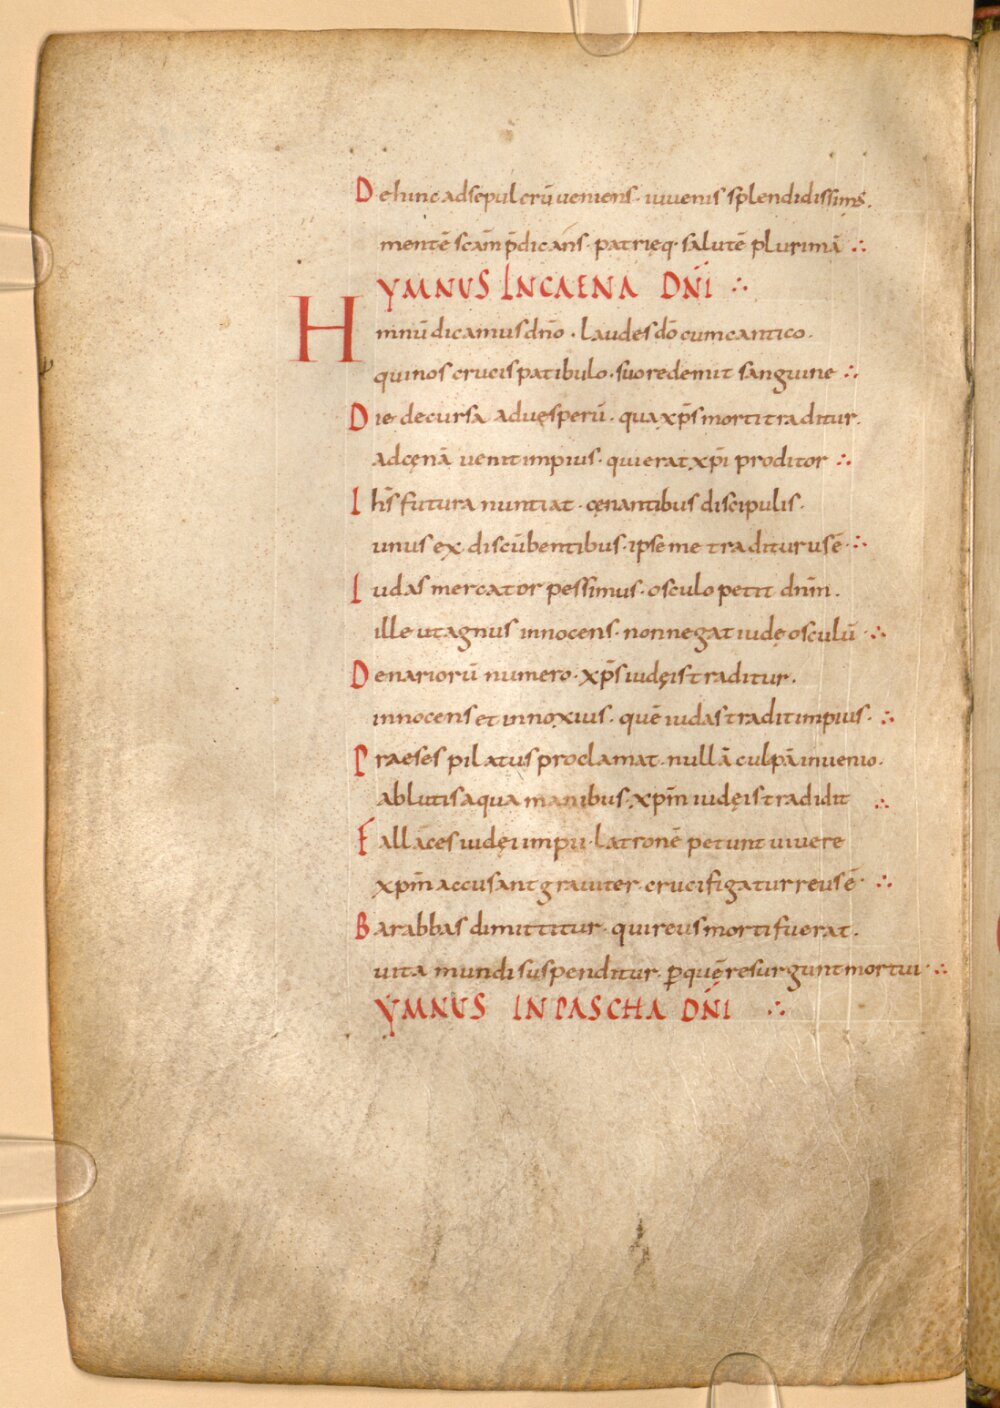 Dehinc ad sepulcrū ueniens · iuuenis splendidissims̄.
mentē scām p̄dicans · patrięq· salutē plurimā ∴
YMNUS IN CAENA DN̄I ∴
Hmnū dicamus dn̄o · Laudes dō cum cantico.
qui nos crucis patibulo · suo redemit sanguine ∴
Die decursa ad uęsperū · qua xp̄s morti traditur.
ad cęnā uenit impius · qui erat xp̄i proditor ∴
Ih̄s futura nuntiat · cęnantibus discipulis.
unus ex discūbentibus · ipse me traditurus ē ∴
Iudas mercator pessimus · osculo petit dn̄m.
ille ut agnus innocens · non negat iudę osculū ∴
Denariorū numero · xp̄s iudęis traditur.
innocens et innoxius · quē iudas tradit impius · ∴
Praeses pilatus proclamat · nullā culpā inuenio.
ablutis aqua manibus · xp̄m iudęis tradidit ∴
Fallaces iudęi impii · latronē petunt uiuere
xp̄m accusant grauiter · crucifigatur reus ē · ∴
Barabbas dimittitur · qui reus morti fuerat.
uita mundi suspenditur · ꝑ quē resurgunt mortui · ∴
YMNUS IN PASCHA DN̄I ∴